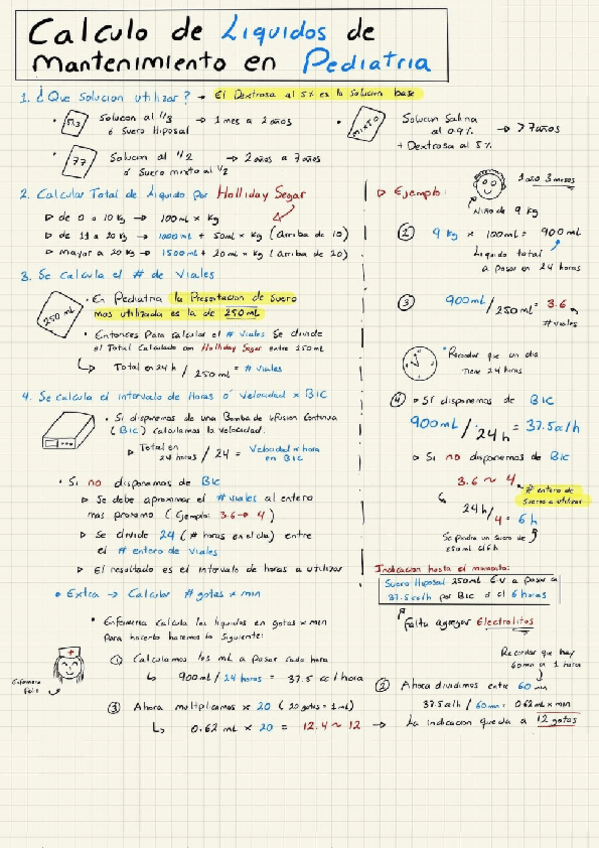 Calculo de Liquidos de
Mantenimiento en Pediatria
1. ¿Que Solucion utilizar? → El Dextrosa al 5% es la Solucion base
• Solucion al 1/3 → 1 mes a 2 años
ó Suero Hiposal
77
Solucion al 1/2 → 2 años a 7 años
ó Suero mixto al 1/2
MIXTO
Solucion Salina
al 0.9% → > 7 años
+ Dextrosa al 5%
2. Calcular Total de Liquido por Holliday Segar
▷ de 0 a 10 Kg → 100 mL x Kg
▷ de 11 a 20 Kg → 1000 mL + 50 mL x Kg (Arriba de 10)
▷ mayor a 20 Kg → 1500 mL + 20 mL x Kg (Arriba de 20)
3. Se calcula el # de Viales
250 mL
• En Pediatria la Presentacion de Suero
mas utilizada es la de 250 mL
• Entonces Para calcular el # viales Se divide
el Total Calculado con Holliday Segar entre 250 mL
↳ Total en 24 h / 250 mL = # viales
4. Se calcula el intervalo de Horas ó Velocidad x BIC
• Si disponemos de una Bomba de Infusion Continua
(BIC) calculamos la velocidad.
▷ Total en 24 horas / 24 = Velocidad x hora en BIC
• Si no disponemos de BIC
▷ Se debe aproximar el # viales al entero
mas proximo (Ejemplo: 3.6 → 4)
▷ Se divide 24 (# horas en el dia) entre
el # entero de Viales
▷ El resultado es el intervalo de horas a utilizar
▷ Ejemplo:
1 año 3 meses
Niño de 9 Kg
② 9 Kg x 100 mL = 900 mL
Liquido total
a pasar en 24 horas
③ 900 mL / 250 mL = 3.6
# viales
• Recordar que un dia
tiene 24 horas
④ ▷ Si disponemos de BIC
900 mL / 24 h = 37.5 cc/h
▷ Si no disponemos de BIC
3.6 ~ 4
# entero de
Sueros a utilizar
24 h / 4 = 6 h
Se pondra un suero de
250 mL c/ 6 h
Indicacion hasta el momento:
Suero Hiposal 250 mL E.V a pasar a
37.5 cc/h por BIC ó c/ 6 horas
Falta agregar Electrolitos
• Extra → Calcular # gotas x min
• Enfermeria Calcula los liquidos en gotas x min
Para hacerlo haremos lo Siguiente:
Enfermera
Feliz
① Calculamos los mL a pasar cada hora
↳ 900 mL / 24 horas = 37.5 cc / hora
Recordar que hay
60 min a 1 hora
② Ahora dividimos entre 60 min
37.5 cc/h / 60 min = 0.62 mL x min
③ Ahora multiplicamos x 20 (20 gotas = 1 mL)
↳ 0.62 mL x 20 = 12.4 ~ 12 → La indicacion queda a 12 gotas